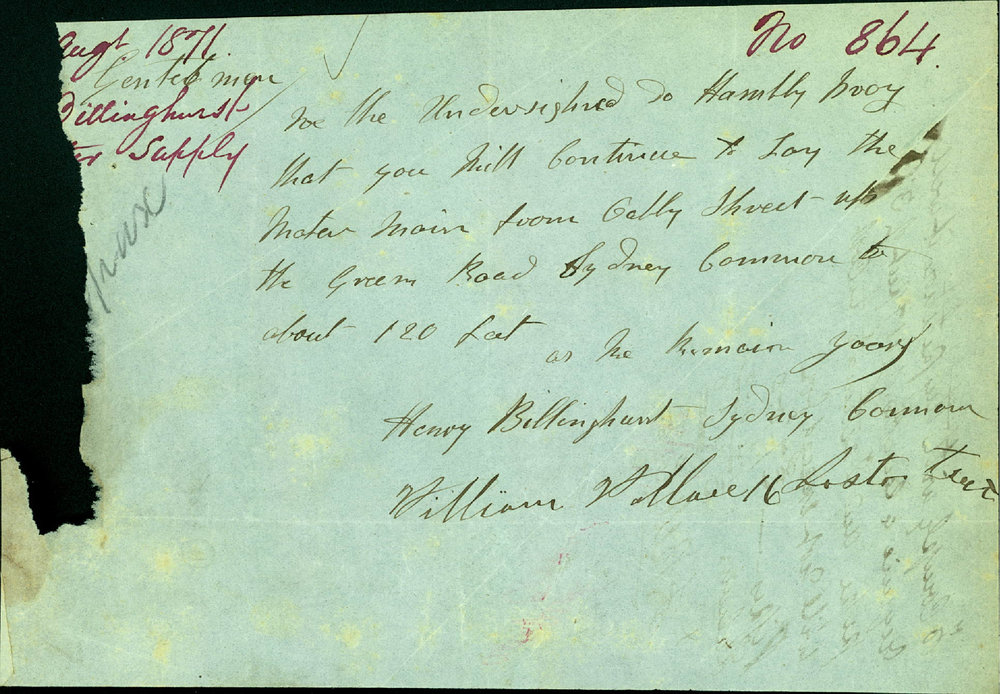 Augt 1871.
No 864.
Gentelmen
Billinghurst
ter Supply
We the Undersighned do Hambly Pray
that you Will Continue to Lay the
Water Main from Street up
the Green Road Sydney Common to
about 120 feet
as We Remain yours
Henry Billinghurst Sydney Common
William Wallace 16